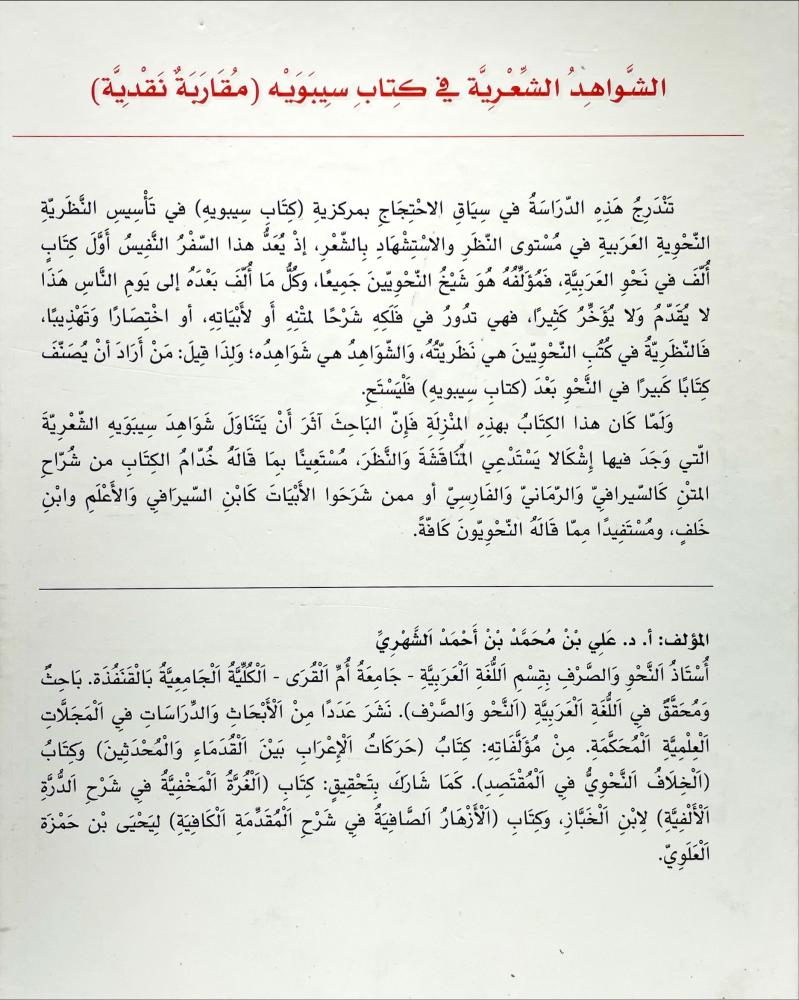 الشَّواهِدُ الشِّعْرِيَّة في كِتابِ سِيبَوَيْه (مُقَارَبَةٌ نَقْدِيَّة)
تَنْدَرِجُ هَذِهِ الدّرَاسَةُ في سِيَاقِ الاحْتِجَاجِ بمركزيةِ (كِتَابِ سِيبويهِ) في تَأْسِيسِ النَّظَرِيّةِ
النّحْوِيةِ العَرَبيةِ في مُسْتوى النّظَرِ والاسْتِشْهَادِ بِالشّعْرِ، إذْ يُعَدُّ هذا السّفْرُ النَّفِيسُ أَوَّلَ كِتَابٍ
أُلّفَ في نَحْوِ العَرَبيَّةِ، فَمُؤَلِّفُهُ هُوَ شَيْخُ النّحْوِيّينَ جَمِيعًا، وَكُلُّ مَا أُلّفَ بَعْدَهُ إلى يَومِ النَّاسِ هَذَا
لا يُقَدّمُ وَلا يُؤَخِّرُ كَثِيرًا، فهي تدُورُ في فَلَكِهِ شَرْحًا لمتْنِهِ أَو لأَبْيَاتِهِ، أو اخْتِصَارًا وَتَهْذِيبًا،
فَالنّظَرِيّةُ في كُتُبِ النّحْوِيّينَ هي نَظَرِيّتُهُ، وَالشّوَاهِدُ هي شَوَاهِدُه؛ وَلِذَا قِيلَ: مَنْ أَرَادَ أنْ يُصَنّفَ
كِتَابًا كَبيرًا في النَّحْوِ بَعْدَ (كتابِ سِيبويهِ) فَلْيَسْتَحِ.
وَلَمّا كَان هذا الكِتَابُ بهذِهِ المنْزِلَةِ فَإِنّ البَاحِثَ آثَرَ أَنْ يَتَنَاوَلَ شَوَاهِدَ سِيبَوَيهِ الشّعْرِيّةَ
الّتي وَجَدَ فيها إِشْكَالا يَسْتَدْعِي المُنَاقَشَةَ وَالنَّظَرَ، مُسْتَعِينًا بِمَا قَالَهُ خُدّامُ الكِتَابِ من شُرّاحِ
المتْنِ كَالسّيرافيِّ وَالرّمّانيّ وَالفَارِسِيّ أو ممن شَرَحَوا الأَبْيَاتَ كَابْنِ السّيرَافي وَالأَعْلَمِ وابْنِ
خَلفٍ، ومُسْتَفِيدًا مِمّا قَالَهُ النّحْوِيّونَ كَافّةً.
المؤلف: أ. د. عَلِي بْنْ مُحَمَّدْ بْنْ أَحْمَدْ اَلشَّهْرِيِّ
أُسْتَاذُ اَلنَّحْوِ وَالصَّرْفِ بِقِسْمِ اَللُّغَةِ اَلْعَرَبِيَّةِ - جَامِعَةُ أُمِّ اَلْقُرَى - اَلْكُلِّيَّةُ اَلْجَامِعِيَّةُ بَالْقُنْفُذَة. بَاحِثٌ
وَمُحَقِّقٌ فِي اَللُّغَةِ اَلْعَرَبِيَّةِ (اَلنَّحْوِ والصَّرْف). نَشَرَ عَدَدًا مِنْ اَلْأَبْحَاثِ وَالدِّرَاسَاتِ فِي اَلْمَجَلَّاتِ
اَلْعِلْمِيَّةِ اَلْمُحَكَّمَةِ. مِنْ مُؤَلَّفَاتِهِ: كِتَابُ (حَرَكَاتُ اَلْإِعْرَابِ بَيْنَ اَلْقُدَمَاءِ وَالْمُحْدَثِينَ) وَكِتَابُ
(اَلْخِلَافُ اَلنَّحْوِيُّ فِي اَلْمُقْتَصِدِ). كَمَا شَارَكَ بِتَحْقِيقٍ: كِتَابِ (اَلْغُرَّةُ اَلْمَخْفِيَّةُ فِي شَرْحِ اَلدُّرَّةِ
اَلْأَلْفِيَّةِ) لِابْنِ اَلْخَبَّازِ، وَكِتَابِ (اَلْأَزْهَارُ اَلصَّافِيَةُ فِي شَرْحِ اَلْمُقَدِّمَةِ اَلْكَافِيَةِ) لِيَحْيَى بْن حَمْزَة
اَلْعَلَوِيّ.